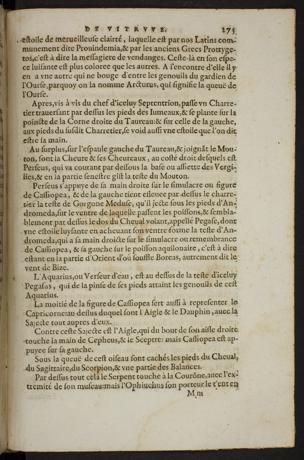 DE VITRVVE. 275
estoile de merueilleuse clairté, laquelle est par nos Latins com-
munement dite Prouindemia, & par les anciens Grecs Protryge-
tos, c'est à dire la messagiere de vendanges. Ceste-là en son espe-
ce luisante est plus coloree que autres. A l'encontre d'elle il y
en a vne autre qui ne bouge d'entre les genouils du gardien de
l'Ourse, parquoy on la nomme Arcturus, qui signifie la queuë de
l'Ourse.
Apres, vis à vis du chef d'iceluy Septentrion, passe vn Charre-
tier trauersant par dessus les pieds des Iumeaux, & se plante sur la
poincte de la Corne droite du Taureau: & sur celle de la gauche,
aux pieds du susdit Charretier, se void aussi vne estoile que l'on dit
estre la main.
Au surplus, sur l'espaule gauche du Taureau, & joignãt le Mou-
ton, sont la Cheure & ses Cheureaux, au costé droit desquels est
Perseus, qui va courant par dessous la base ou assiette des Vergi-
lies, & en sa partie senestre gist la teste du Mouton.
Perseus s'appuye de sa main droite sur le simulacre ou figure
de Cassiopea, & de la gauche tient estenee par dessus le charre-
tier la teste de Gorgone Meduse, qu'il jecte sous les pieds d'An-
dromeda, sur le ventre de laquelle passent les poissons, & sembla-
blement par dessus le dos du Cheual volant, appellé Pegase, dont
vne estoile luysante en acheuant son ventre forme la teste d'An-
dromeda, qui a sa main droicte sur le simulacre ou remembrance
de Cassiopea, & sa gauche sur le poisson aquilonaire, c'est à dire
estant en la partie d'Orient d'où souffle Boreas, autrement dit le
vent de Bize.
L'Aquarius, ou Verseur d'eau, est au dessus de la teste d'iceluy
Pegasus, qui de la pinse de ses pieds attaint les genouils de cest
Aquarius.
La moitié de la figure de Cassiopea sert aussi à representer le
Capricorne au dessus duquel sont l'Aigle & le Dauphin, auec la
Sajecte tout aupres d'eux.
Contre ceste Sajecte est l'Aigle, qui du bout de son aisle droite
touche la main de Cepheus, & le Sceptre: mais Cassiopea est ap-
puyee sur sa gauche.
Sous la queuë de cest oiseau sont cachés les pieds du Cheual,
du Sagittaire, du Scorpion, & vne partie des Balances.
Par dessus tout cela le Serpent touche à la Courõne, auec l'ex-
tremité de son museau: mais l'Ophiuchus son porteur le tient en
M m